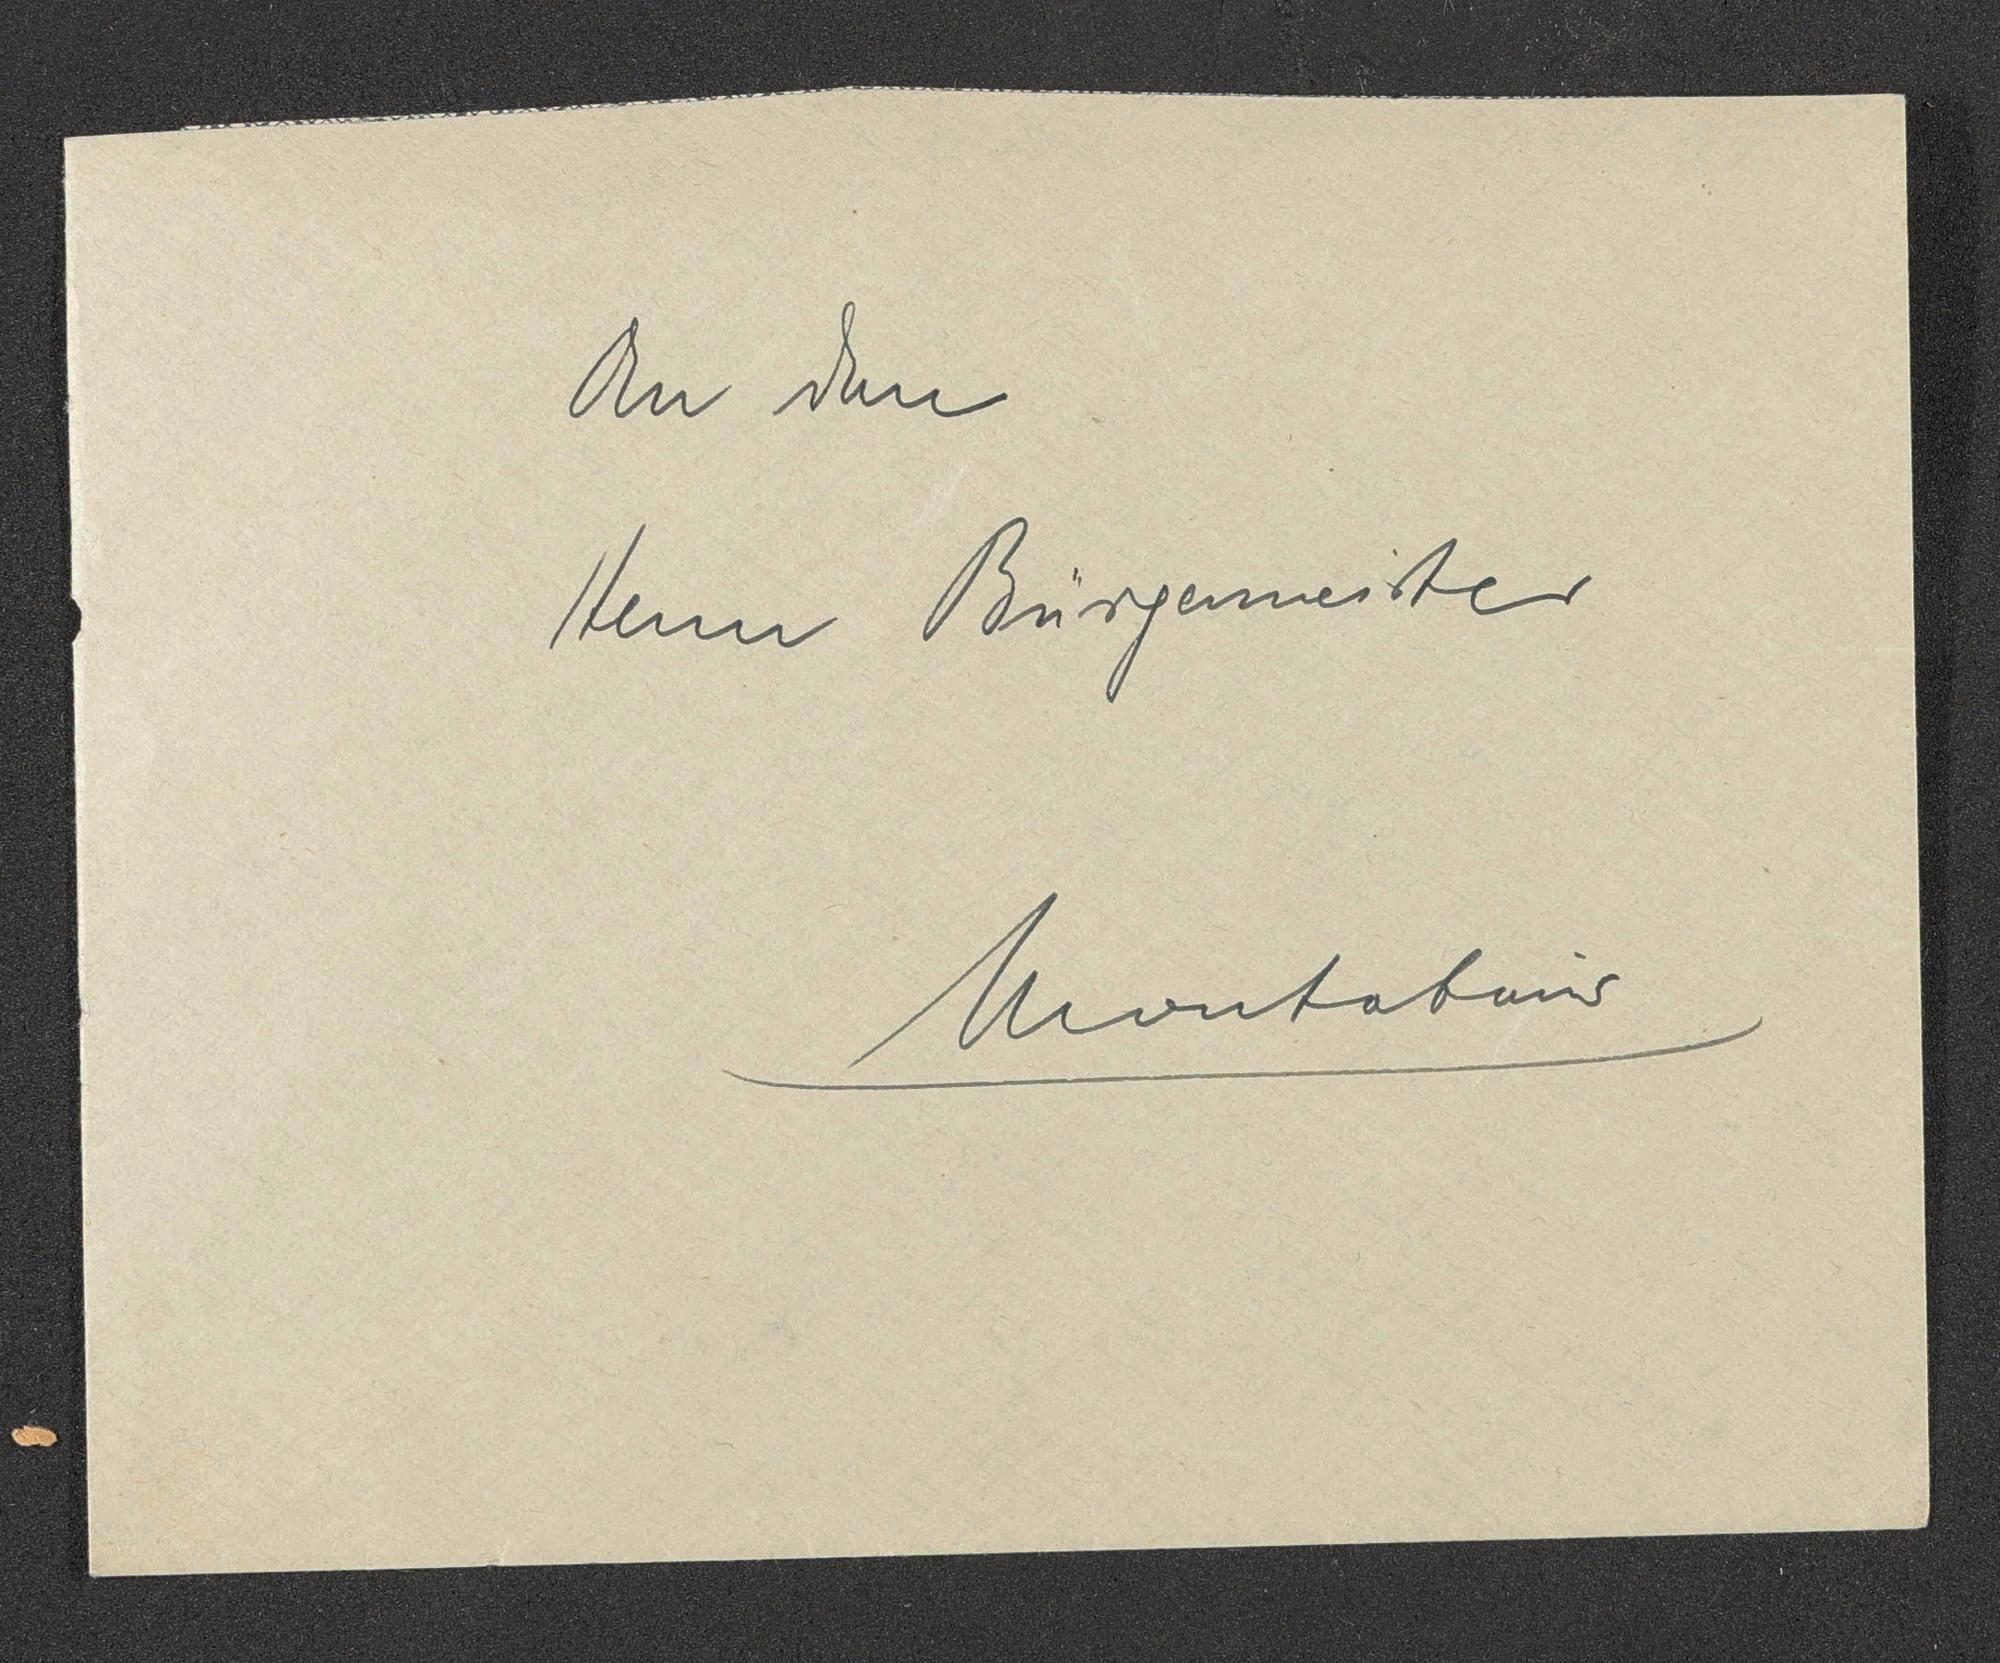 An den
Herrn Bürgermeister
Montabaur